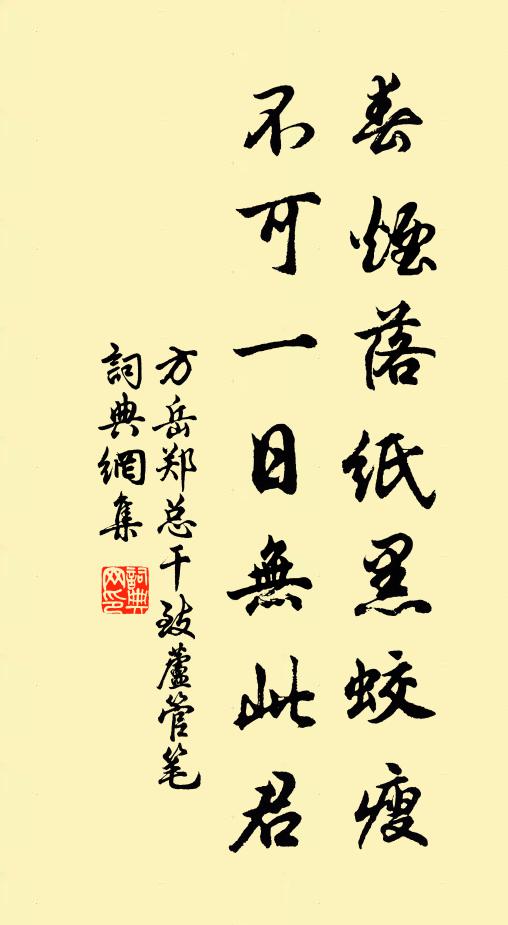 春煙落紙黑蛟瘦
不可一日無此君
方岳郑总干致蘆管笔
詞典網集
詞典
网印